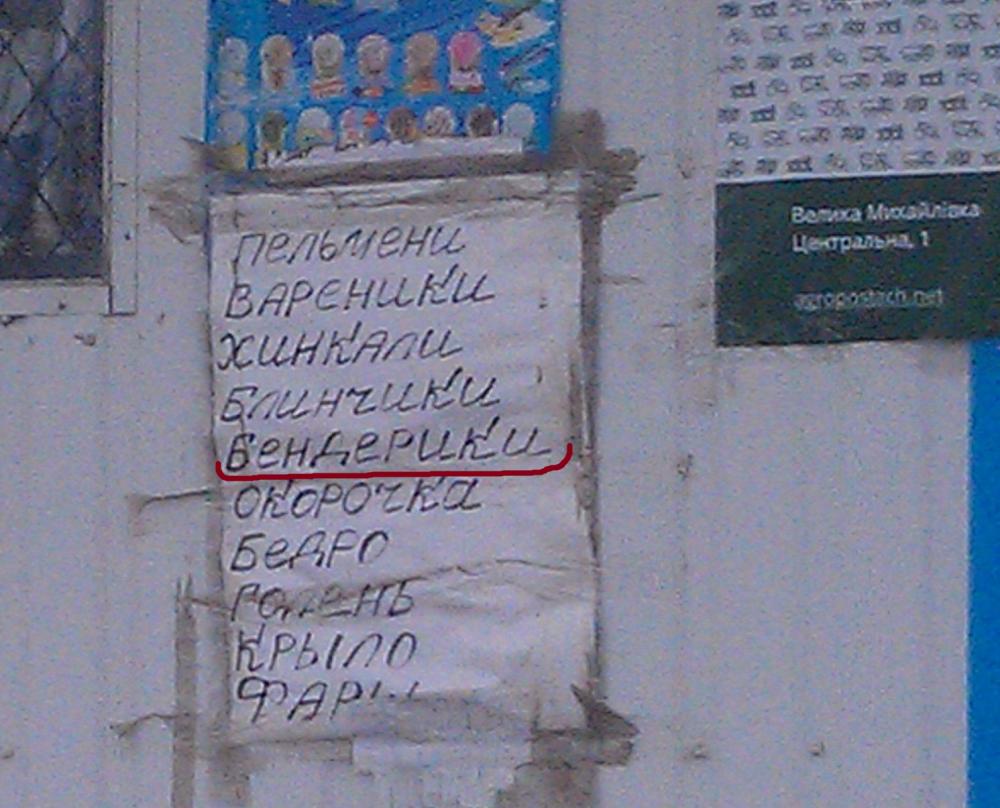 ПЕЛЬМЕНИ
ВАРЕНИКИ
ХИНКАЛИ
БЛИНЧИКИ
БЕНДЕРИКИ
ОКОРОЧКА
БЕДРО
ГОЛЕНЬ
КРЫЛО
ФАРШ
Велика Михайлівка
Центральна, 1
agropostach.net